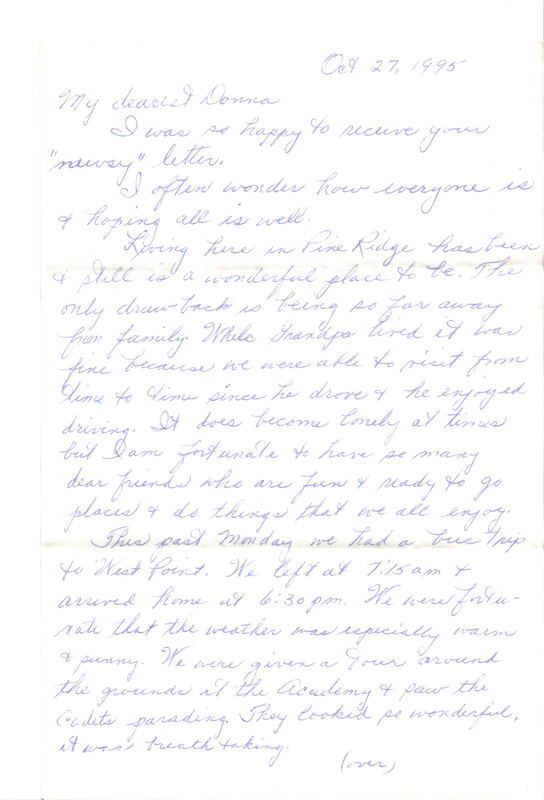 Oct. 27, 1995
My dearest Donna
I was so happy to receive your
"newsy" letter.
I often wonder how everyone is
& hoping all is well.
Living here in Pine Ridge has been
& still is a wonderful place to be. The
only drawback is being so far away
from family. While Grandpa lived it was
fine because we were able to visit from
time to time since he drove & he enjoyed
driving. It does become lonely at times
but I am fortunate to have so many
dear friends who are fun & ready to go
places & do things that we all enjoy.
This past Monday we had a bus trip
to West Point. We left at 7:15 am &
arrived home at 6:30 pm. We were fortu-
nate that the weather was especially warm
& sunny. We were given a tour around
the grounds at the Academy & saw the
Cadets parading. They looked so wonderful,
it was breath taking.
(over)